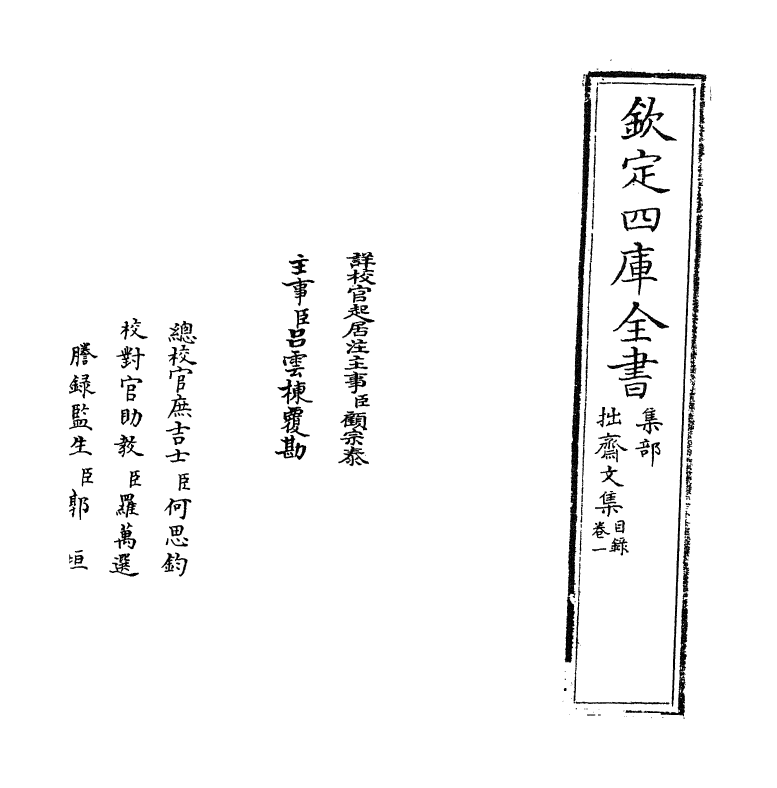 欽定四庫全書
集部
拙齋文集
目録
卷一
詳校官起居注主事臣顧宗泰
主事臣呂雲棟覆勘
總校官庶吉士臣何思鈞
校對官助教臣羅萬選
謄録監生臣郭垣